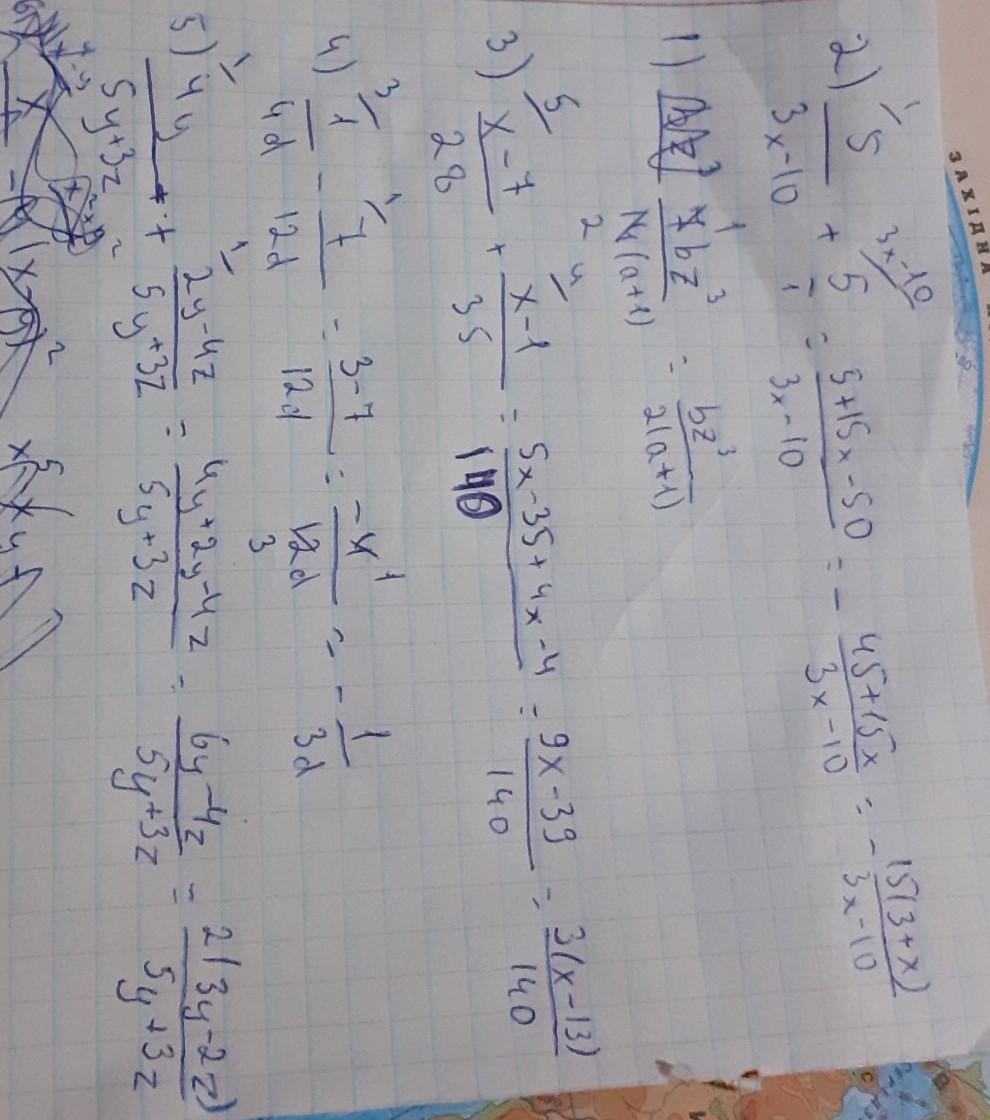 ЗАХІДНА
2) 1/ 5/(3x-10) + 3x-10/ 5/1 = (5+15x-50)/(3x-10) = - (45+15x)/(3x-10) = - 15(3+x)/(3x-10)
1) 1 7bz³/14(a+1) 2 = bz³/2(a+1)
3) 5/ (x-7)/28 + 4/ (x-1)/35 = (5x-35+4x-4)/140 = (9x-39)/140 = 3(x-13)/140
4) 3/ 1/4d - 1/ 7/12d = (3-7)/12d = -4 1/12d 3 = - 1/3d
5) 1/ 4y/(5y+3z) + 1/ (2y-4z)/(5y+3z) = (4y+2y-4z)/(5y+3z) = (6y-4z)/(5y+3z) = 2(3y-2z)/(5y+3z)